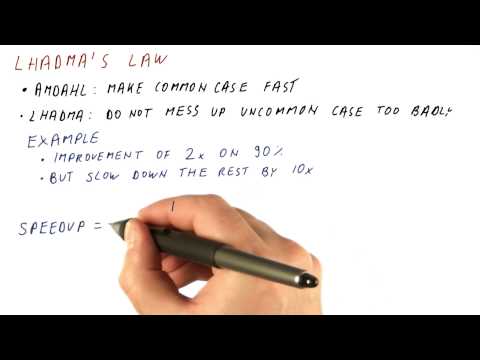 LHADMA'S LAW
• AMDAHL: MAKE COMMON CASE FAST
• LHADMA: DO NOT MESS UP UNCOMMON CASE TOO BADLY
EXAMPLE
• IMPROVEMENT OF 2x ON 90%
• BUT SLOW DOWN THE REST BY 10x
1
SPEEDUP =